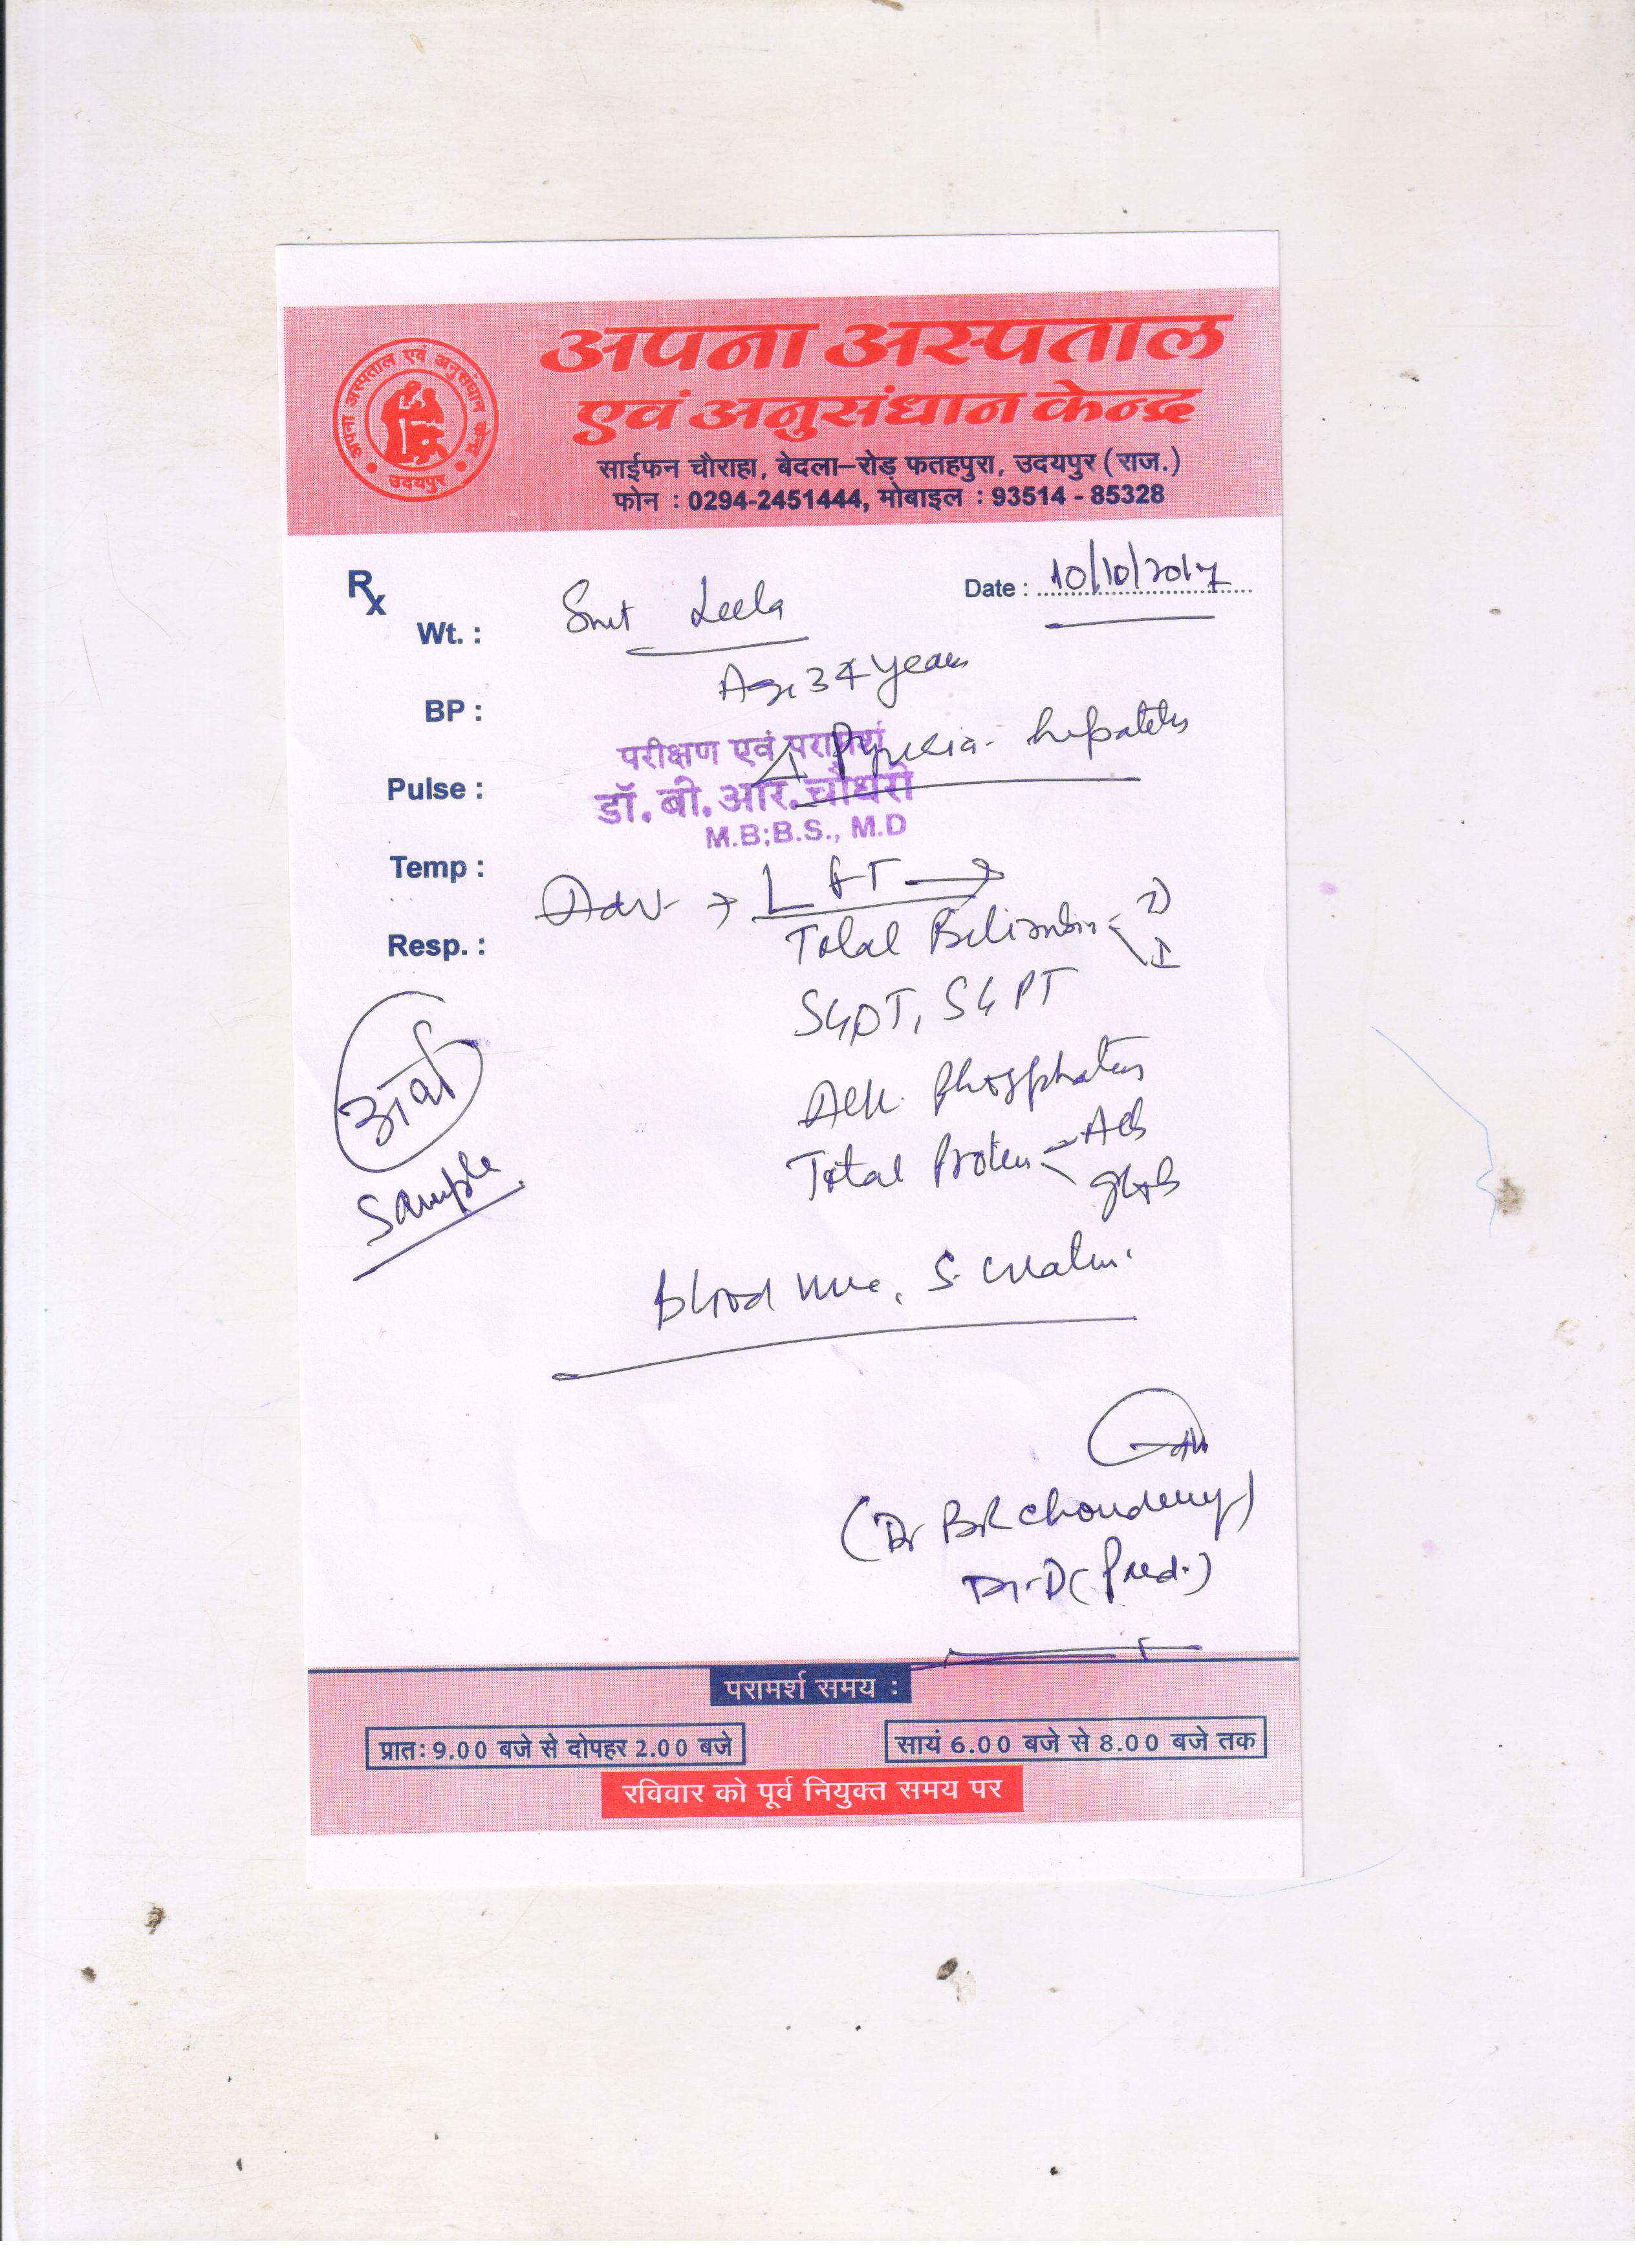 अपना अस्पताल
एवं अनुसंधान केन्द्र
साईफन चौराहा, बेदला-रोड़ फतहपुरा, उदयपुर (राज.)
फोन : 0294-2451444, मोबाइल : 93514 - 85328
अपना अस्पताल एवं अनुसंधान केन्द्र
उदयपुर
Rx
Date : 10/10/2017
Wt. :
Smt Leela
Age 34 years
BP :
Δ Pyrexia - hepatitis
परीक्षण एवं परामर्श
डॉ. बी. आर. चौधरी
M.B;B.S., M.D
Pulse :
Temp :
Adv → LFT →
Total Bilirubin - D
I
Resp. :
SGOT, SGPT
Alk. phosphatas
Total Protein - Alb
glob
Sample
Blood urea, S. creatin.
(Dr BR Choudhery)
M.D (
परामर्श समय :
प्रातः 9.00 बजे से दोपहर 2.00 बजे
सायं 6.00 बजे से 8.00 बजे तक
रविवार को पूर्व नियुक्त समय पर